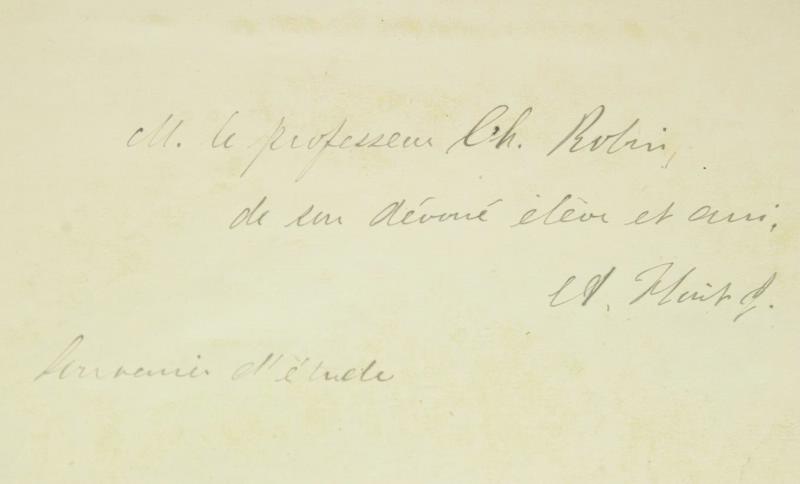 M. le professeur Ch. Robin,
de son dévoué élève et ami,
A. Flint J.
Souvenir d'étude